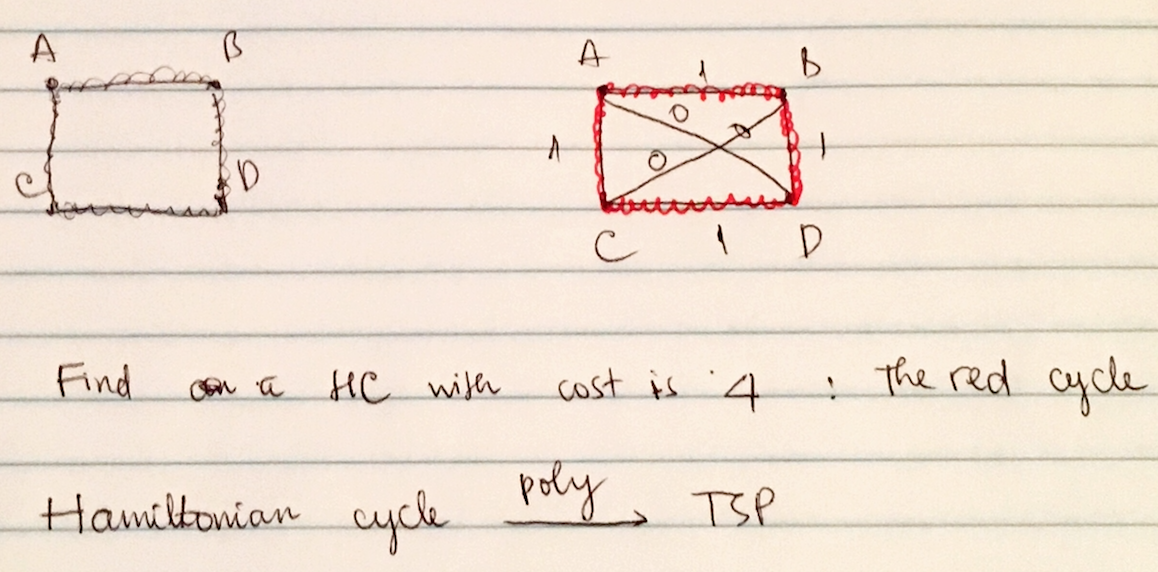 A B A 1 B
0
1 0 1
C D
C 1 D
Find a HC with cost is 4 : The red cycle
Hamiltonian cycle poly → TSP